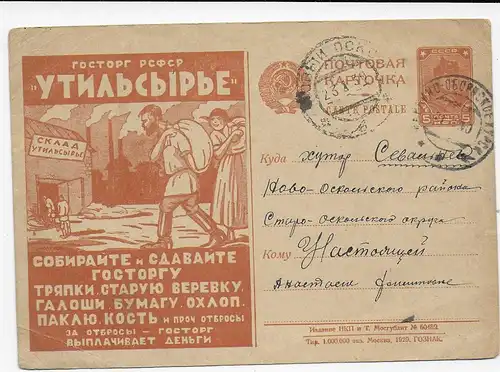 ГОСТОРГ РСФСР
"УТИЛЬСЫРЬЕ"
СКЛАД
УТИЛЬСЫРЬЕ
СОБИРАЙТЕ и СДАВАЙТЕ
ГОСТОРГУ
ТРЯПКИ, СТАРУЮ ВЕРЕВКУ,
ГАЛОШИ, БУМАГУ, ОХЛОП.
ПАКЛЮ, КОСТЬ и ПРОЧ ОТБРОСЫ
ЗА ОТБРОСЫ – ГОСТОРГ
ВЫПЛАЧИВАЕТ ДЕНЬГИ
ПОЧТОВАЯ
КАРТОЧКА
CARTE POSTALE
СССР
5 5
Куда хутор
Ново-Оскольского района
Старо-Оскольского округа
Кому Настоящей
Анастасии
Издание НКП и Т. Мосгублит № 60469.
Тир. 1.000.000 экз. Москва, 1929. ГОЗНАК.